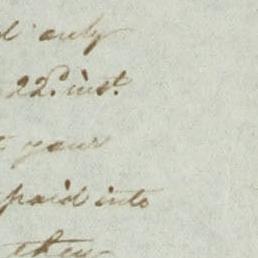 only
22d. inst.
your
paid into
they